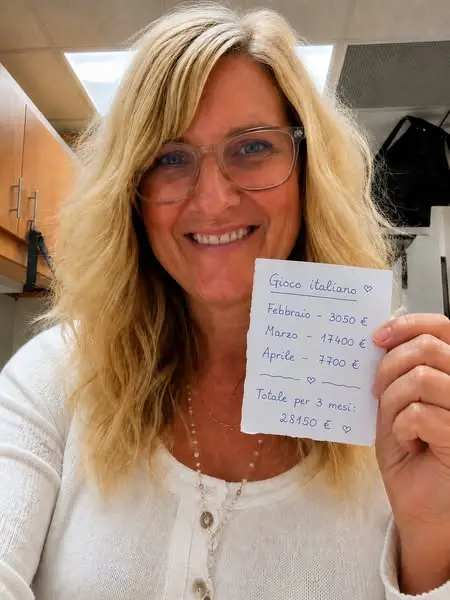 Gioco italiano ♡
Febbraio - 3050 €
Marzo - 17400 €
Aprile - 7700 €
♡
Totale per 3 mesi:
28150 € ♡